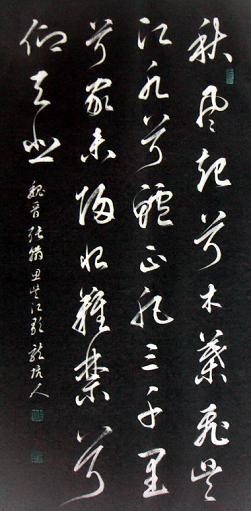 秋風起兮木葉飛吴
江水兮鱸正肥三千里
兮家未歸恨難禁兮
仰天悲
魏晋張翰思吴江歌